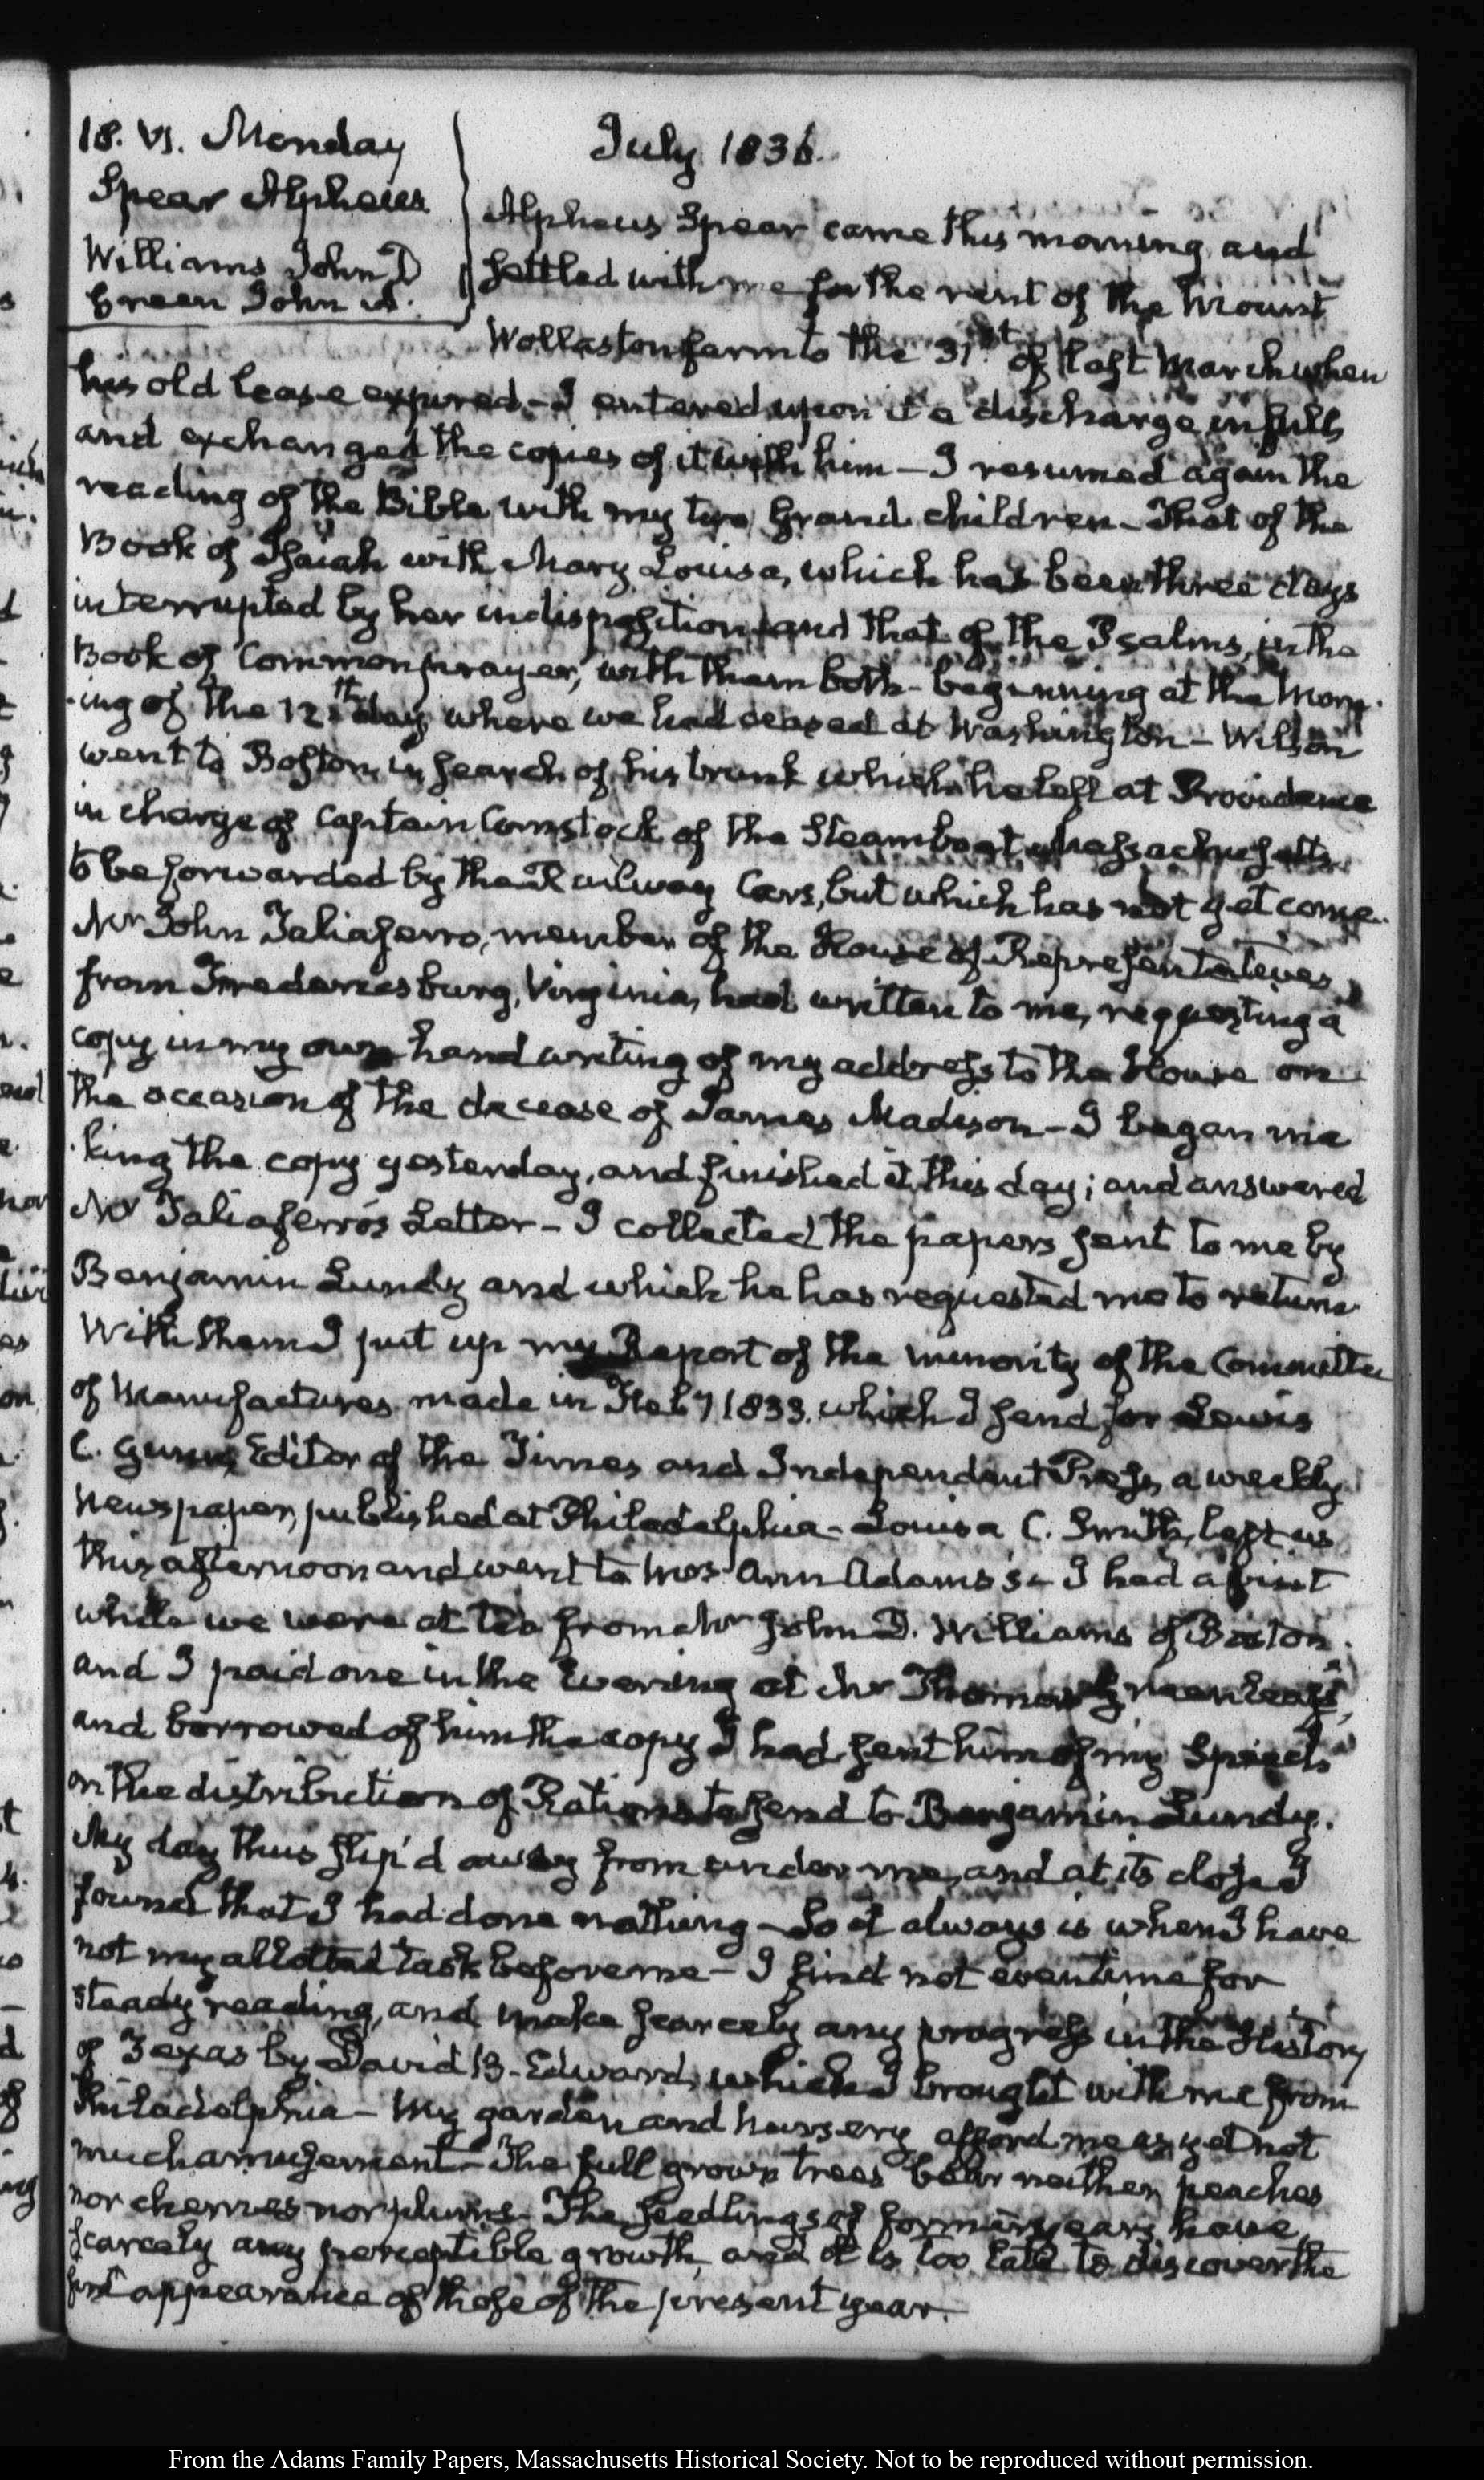 July 1836.
18. VI. Monday
Spear Alpheus
Williams John D
Green John A.
Alpheus Spear came this morning and
settled with me for the rent of the Mount
Wollaston farm to the 31st of last March when
his old lease expired - I entered upon it a discharge in full,
and exchanged the copies of it with him - I resumed again the
reading of the Bible with my two Grand children - That of the
Book of Isaiah with Mary Louisa, which has been three days
interrupted by her indisposition, and that of the Psalms, in the
Book of Common prayer, with them both - beginning at the Morn
-ing of the 12th day where we had ceased at Washington - Wilson
went to Boston in search of his trunk which he left at Providence
in charge of Captain Comstock of the Steamboat Massachusetts
to be forwarded by the Railway Cars, but which has not yet come.
Mr John Taliaferro, member of the House of Representatives,
from Fredericksburg, Virginia, had written to me, requesting a
copy in my own hand writing of my address to the House on
the occasion of the decease of James Madison - I began ma
-king the copy yesterday, and finished it this day; and answered
Mr Taliaferro's Letter - I collected the papers sent to me by
Benjamin Lundy and which he has requested me to return
With them I put up my Report of the minority of the Committee
of Manufactures made in Feby 1833. which I send for Lewis
C. Gunn, Editor of the Times and Independent Press, a weekly
Newspaper, published at Philadelphia - Louisa C. Smith, left us
this afternoon and went to Mrs Ann Adams's - I had a visit
while we were at tea from Mr John D. Williams of Boston.
and I paid one in the Evening at Mr Thomas Greenleaf's,
and borrowed of him the copy I had sent him of my Speech
on the distribution of Rations to send to Benjamin Lundy.
My day thus slip'd away from under me, and at its close I
found that I had done nothing - So it always is when I have
not my allotted task before me - I find not even time for
steady reading, and make scarcely any progress in the History
of Texas by David B. Edward, which I brought with me from
Philadelphia - My garden and nursery afford me as yet not
much amusement - The full grown trees bear neither peaches
nor cherries nor plums. The seedlings of former years have
scarcely any perceptible growth, and it is too late to discover the
first appearance of those of the present year.
From the Adams Family Papers, Massachusetts Historical Society. Not to be reproduced without permission.